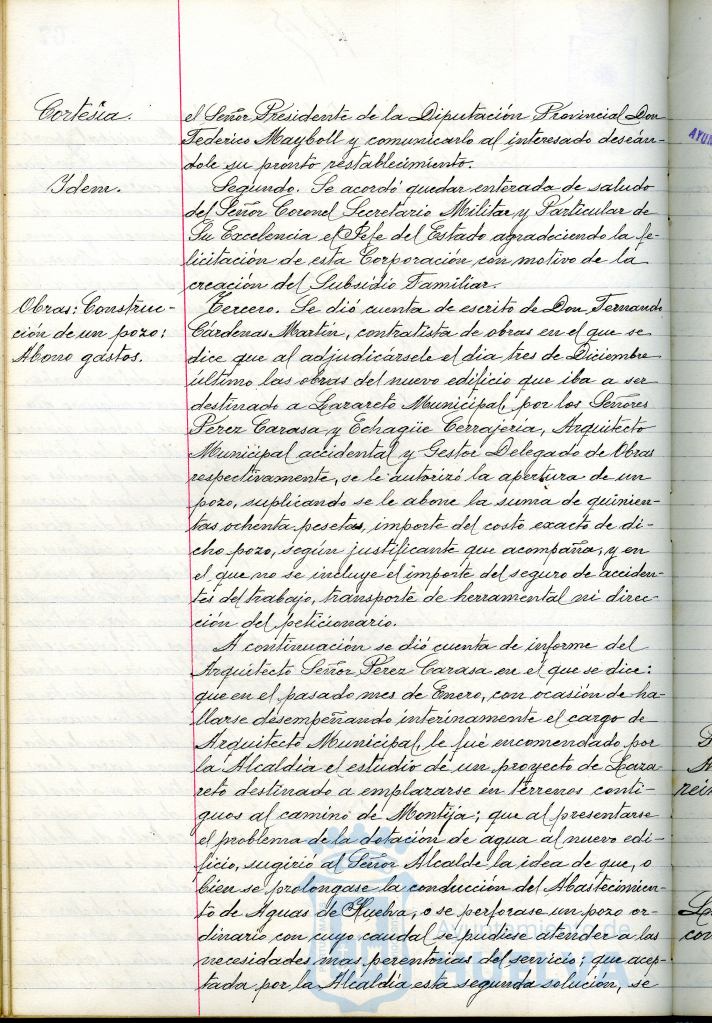 Cortesia.
el Señor Presidente de la Diputación Provincial Don
Federico Mayboll y comunicarlo al interesado deseán-
dole su pronto restablecimiento.
Idem.
Segundo. Se acordó quedar enterada de saludo
del Señor Coronel Secretario Militar y Particular de
Su Excelencia el Jefe del Estado agradeciendo la fe-
licitación de esta Corporación con motivo de la
creación del Subsidio Familiar.
Obras: Construc-
ción de un pozo:
Abono gastos.
Tercero. Se dió cuenta de escrito de Don Fernando
Cárdenas Martin, contratista de obras en el que se
dice que al adjudicársele el dia tres de Diciembre
último las obras del nuevo edificio que iba a ser
destinado a Lazareto Municipal, por los Señores
Pérez Carasa y Echagüe Cerrajeria, Arquitecto
Municipal accidental y Gestor Delegado de Obras
respectivamente, se le autorizó la apertura de un
pozo, suplicando se le abone la suma de quinien-
tas ochenta pesetas, importe del costo exacto de di-
cho pozo, según justificante que acompaña, y en
el que no se incluye el importe del seguro de acciden-
tes del trabajo, transporte de herramental ni direc-
ción del peticionario.
A continuación se dió cuenta de informe del
Arquitecto Señor Pérez Carasa en el que se dice:
que en el pasado mes de Enero, con ocasión de ha-
llarse desempeñando interinamente el cargo de
Arquitecto Municipal, le fué encomendado por
la Alcaldía el estudio de un proyecto de Laza-
reto destinado a emplazarse en terrenos conti-
guos al camino de Montija; que al presentarse
el problema de la dotación de agua al nuevo edi-
ficio, sugirió al Señor Alcalde la idea de que, o
bien se prolongase la conducción del Abastecimien-
to de Aguas de Huelva, o se perforase un pozo or-
dinario con cuyo caudal se pudiese atender a las
necesidades mas perentorias del servicio; que acep-
tada por la Alcaldía esta segunda solución, se
Ayuntamiento de
HUELVA